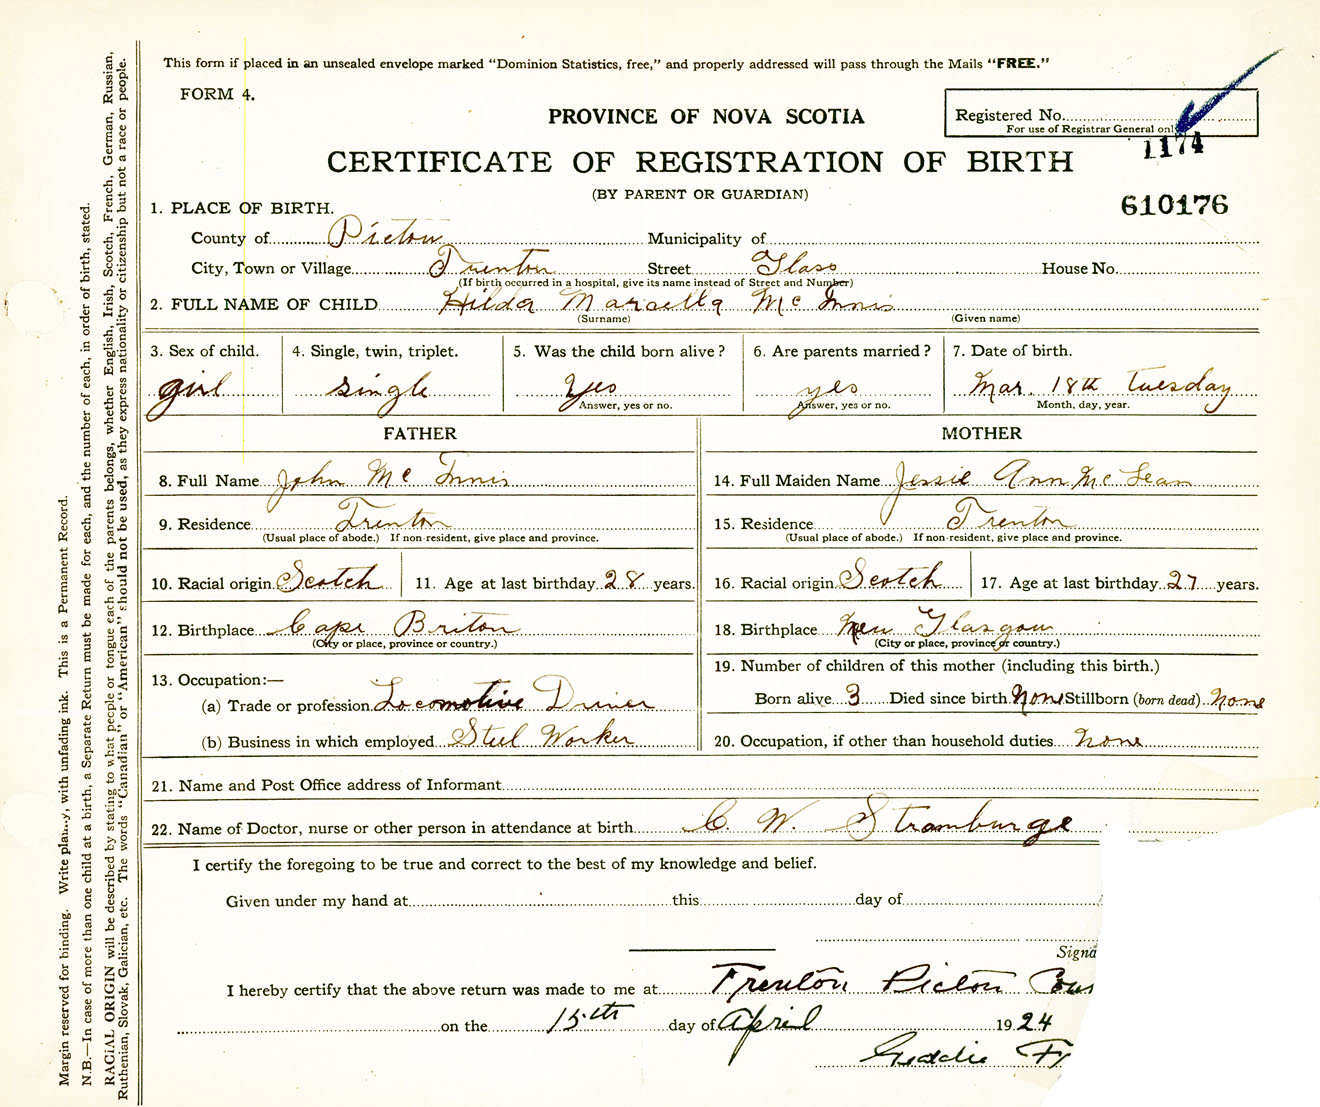 This form if placed in an unsealed envelope marked “Dominion Statistics, free,” and properly addressed will pass through the Mails “FREE.”
FORM 4.
PROVINCE OF NOVA SCOTIA
Registered No.
For use of Registrar General only
1174
CERTIFICATE OF REGISTRATION OF BIRTH
(BY PARENT OR GUARDIAN)
610176
1. PLACE OF BIRTH.
County of Pictou Municipality of
City, Town or Village Trenton Street Glass House No.
(If birth occurred in a hospital, give its name instead of Street and Number)
2. FULL NAME OF CHILD Hilda Marcella Mc Innis
(Surname) (Given name)
3. Sex of child. 4. Single, twin, triplet. 5. Was the child born alive? 6. Are parents married? 7. Date of birth.
girl single Yes yes Mar. 18th tuesday
Answer, yes or no. Answer, yes or no. Month, day, year.
FATHER
8. Full Name John Mc Innis
9. Residence Trenton
(Usual place of abode.) If non-resident, give place and province.
10. Racial origin Scotch 11. Age at last birthday 28 years.
12. Birthplace Cape Briton
(City or place, province or country.)
13. Occupation:—
(a) Trade or profession Locomotive Driver
(b) Business in which employed Steel Worker
MOTHER
14. Full Maiden Name Jessie Ann Mc Lean
15. Residence Trenton
(Usual place of abode.) If non-resident, give place and province.
16. Racial origin Scotch 17. Age at last birthday 27 years.
18. Birthplace New Glasgow
(City or place, province or country.)
19. Number of children of this mother (including this birth.)
Born alive 3 Died since birth None Stillborn (born dead) None
20. Occupation, if other than household duties None
21. Name and Post Office address of Informant
22. Name of Doctor, nurse or other person in attendance at birth C. W. Stramburge
I certify the foregoing to be true and correct to the best of my knowledge and belief.
Given under my hand at this day of
Signa
I hereby certify that the above return was made to me at Trenton Pictou Cou
on the 15th day of April 1924
Geddie
Margin reserved for binding. Write plainly, with unfading ink. This is a Permanent Record.
N.B.—In case of more than one child at a birth, a Separate Return must be made for each, and the number of each, in order of birth, stated.
RACIAL ORIGIN will be described by stating to what people or tongue each of the parents belongs, whether English, Irish, Scotch, French, German, Russian,
Ruthenian, Slovak, Galician, etc. The words “Canadian” or “American” should not be used, as they express nationality or citizenship but not a race or people.